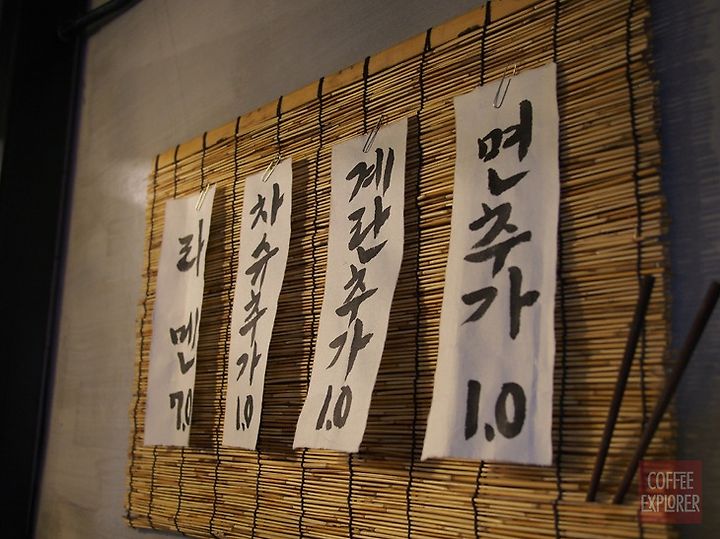 라멘 7.0
차슈추가 1.0
계란추가 1.0
면추가 1.0
COFFEE
EXPLORER